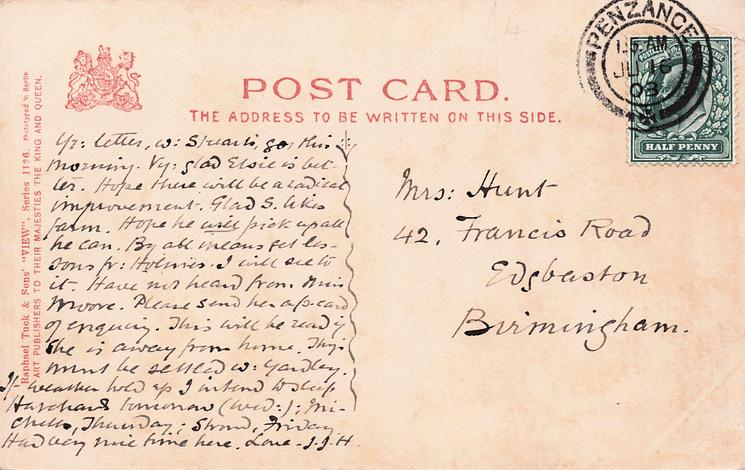 PENZANCE
JU 16
03
HALF PENNY
POST CARD.
THE ADDRESS TO BE WRITTEN ON THIS SIDE.
Raphael Tuck & Sons' "VIEW". Series 1126. Photographed in Berlin
ART PUBLISHERS TO THEIR MAJESTIES THE KING AND QUEEN.
Yr: letter, w: Stuart's, got this
morning. Vy: glad Elsie is bet-
ter. Hope there will be a radical
improvement. Glad S. likes
farm. Hope he will pick up all
he can. By all means get les-
sons fr: Holmes. I will see to
it. Have not heard from Miss
Moore. Please send her a p. card
of enquiry. This will be ready if
she is away from home. This
must be settled w: Yardley.
If weather hold up I intend to
tomorrow (Wed:); Mi-
Thursday; Friday
Had very nice time here. Love - J.J.H.
Mrs: Hunt
42, Francis Road
Edgbaston
Birmingham.